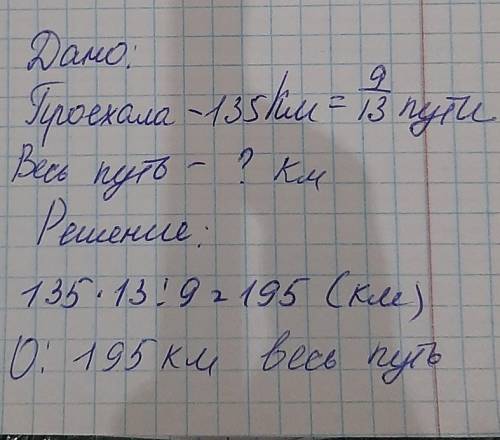 Дано:
Проехала - 135 км = 9/13 пути
Весь путь - ? км
Решение:
135 · 13 : 9 = 195 (км)
О: 195 км весь путь